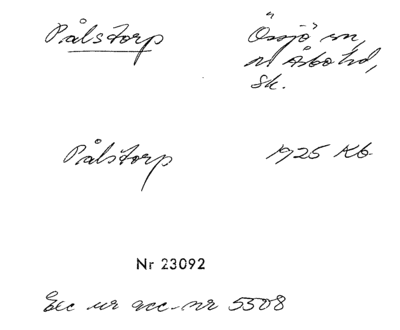 Pålstorp Össjö sn,
N Åsbo hd,
Sk.
Pålstorp 1925 Kb
Nr 23092
Exc ur acc-nr 5508